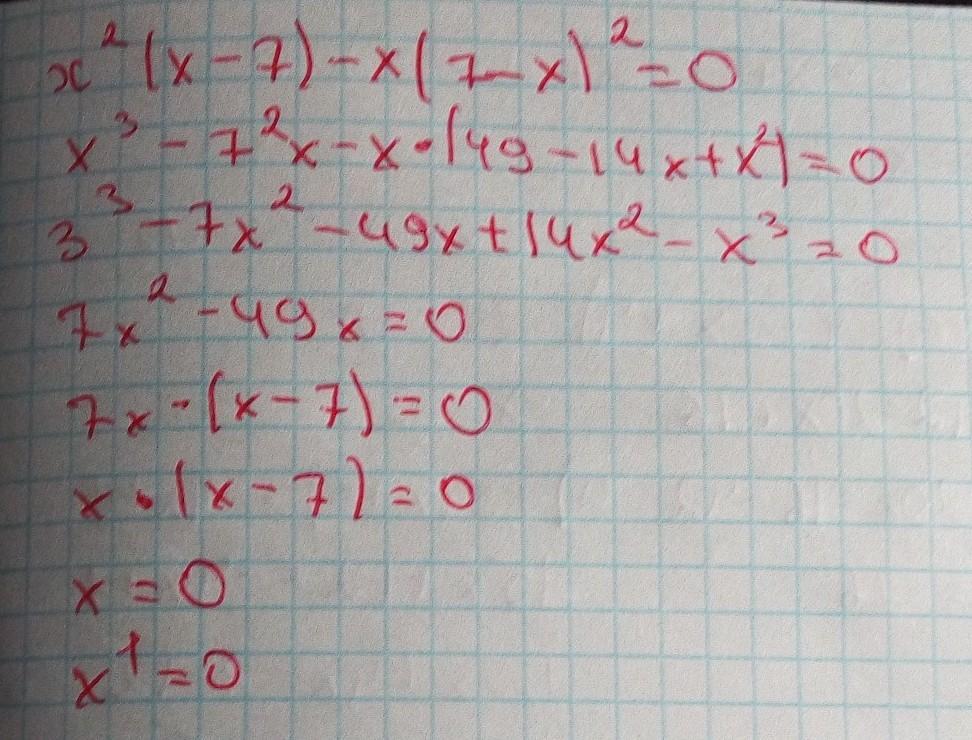 x²(x-7)-x(7-x)²=0
x³-7²x-x•(49-14x+x²)=0
3³-7x²-49x+14x²-x³=0
7x²-49x=0
7x·(x-7)=0
x•(x-7)=0
x=0
x¹=0